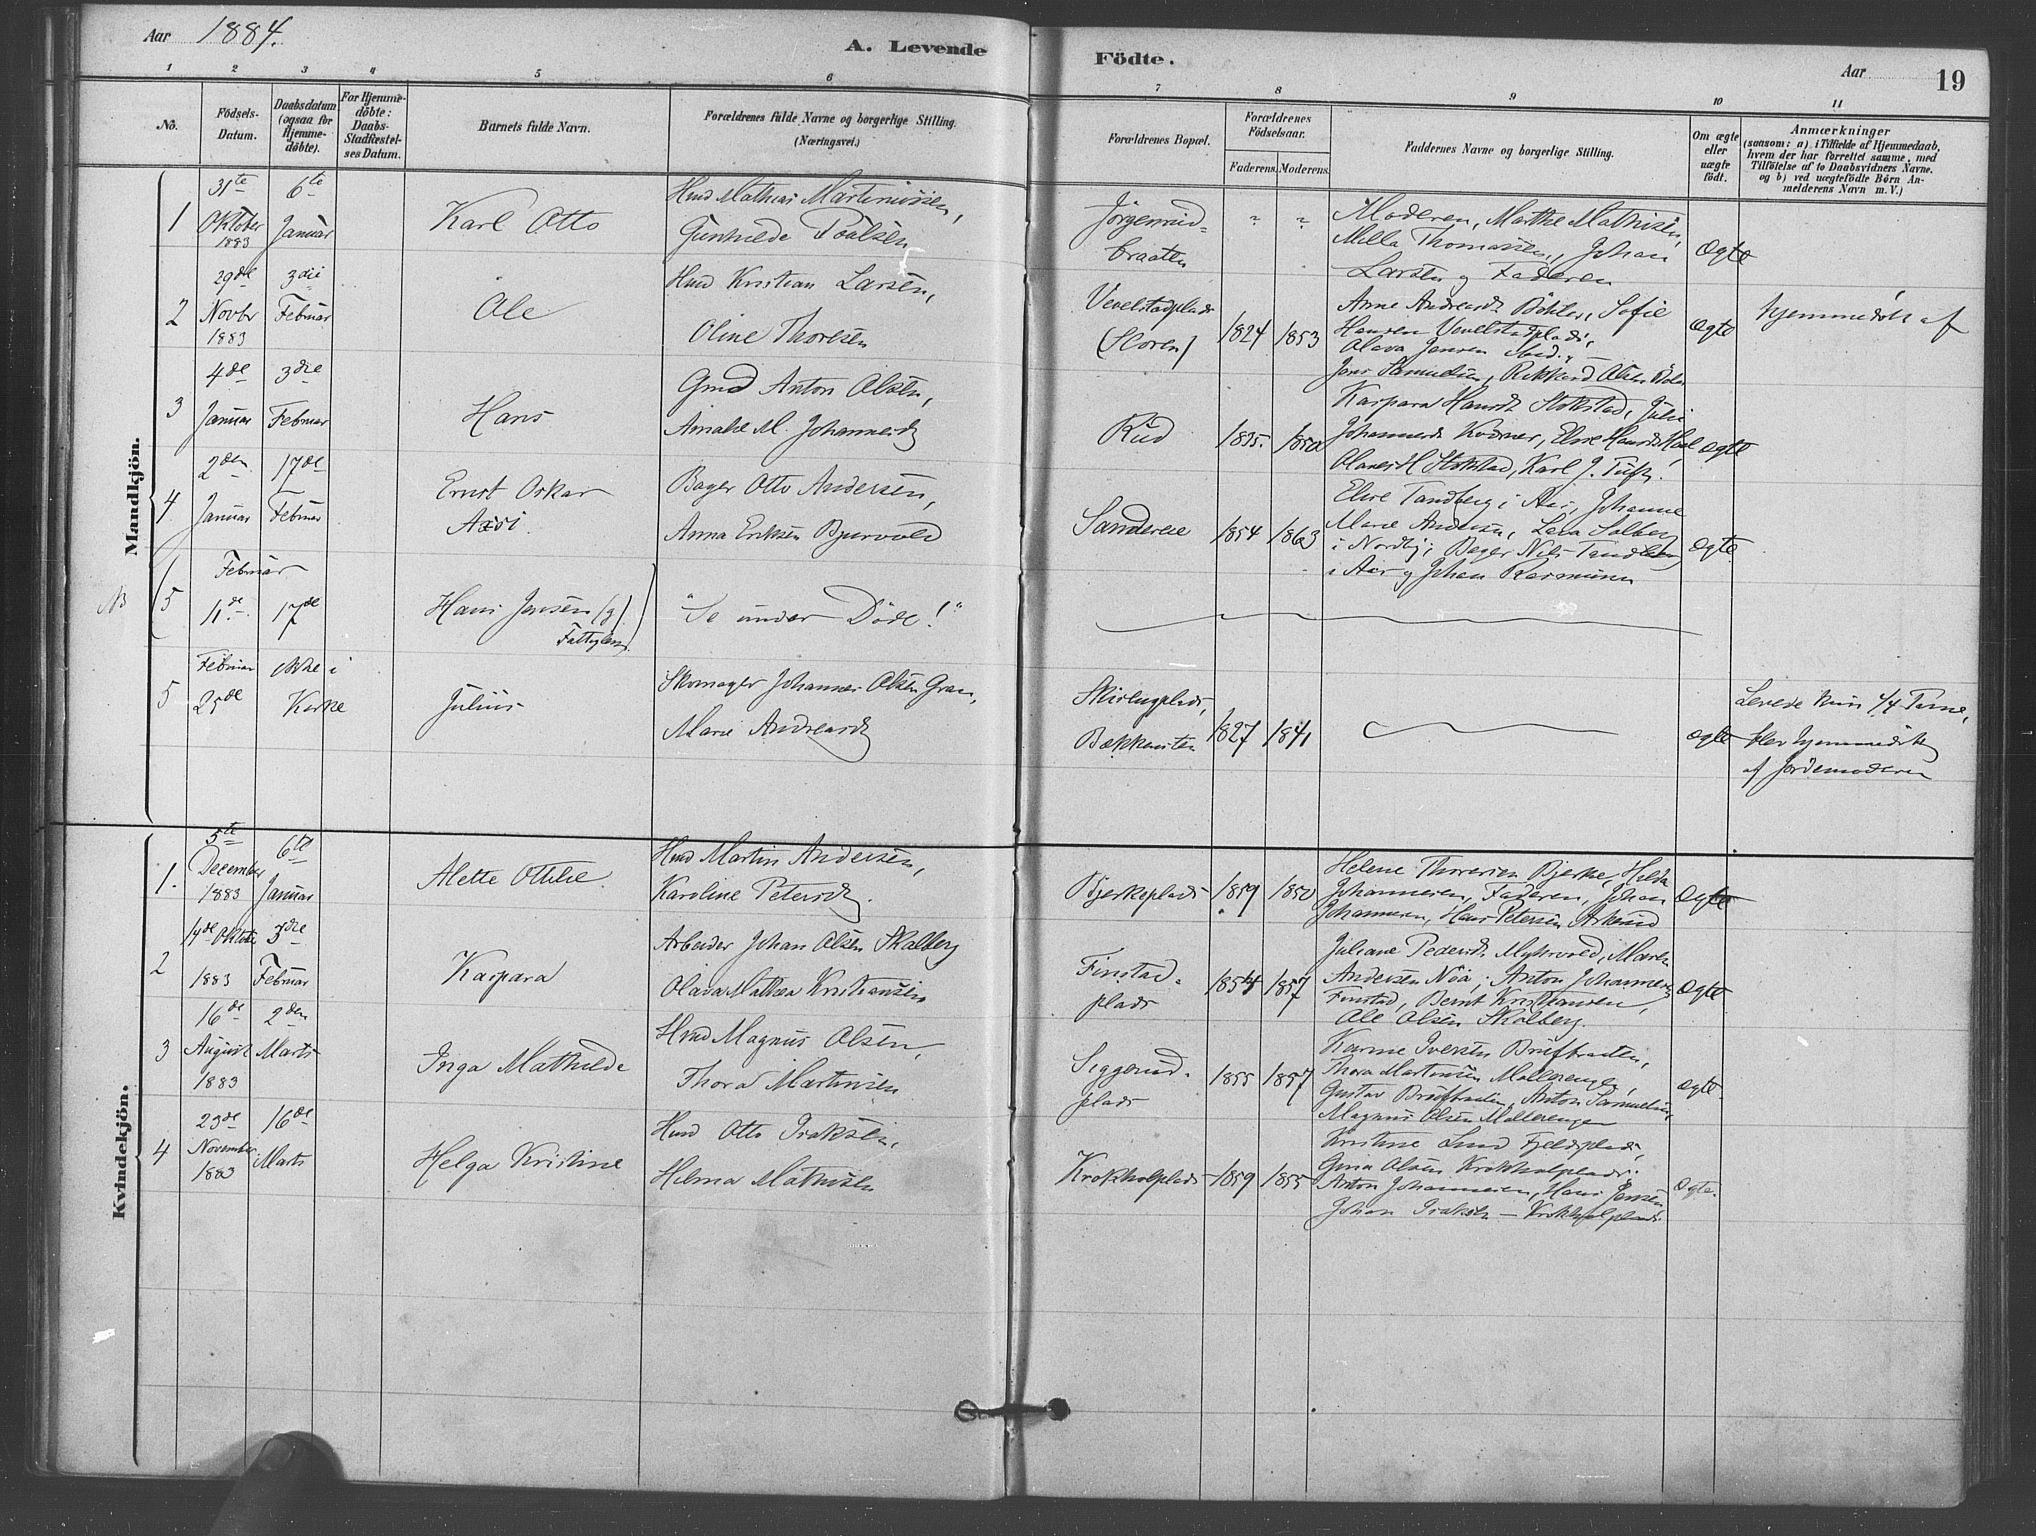 Aar 1884.
A. Levende Födte.
Aar
19
1 2 3 4 5 6 7 8 9 10 11
Nö.
Födsels-Datum.
Daabsdatum (ogsaa for Hjemme-döbte).
For Hjemme-döbte: Daabs-Stadfæstel-ses Datum.
Barnets fulde Navn.
Forældrenes fulde Navne og borgerlige Stilling. (Næringsvei.)
Forældrenes Bopæl.
Forældrenes Födselsaar.
Faderens. Moderens.
Faddernes Navne og borgerlige Stilling.
Om ægte eller uægte födt.
Anmærkninger (saasom: a) i Tilfælde af Hjemmedaab, hvem der har forrettet samme, med Tilföielse af to Daabsvidners Navne. og b) ved uægtefödte Börn An-melderens Navn m. V.)
Mandkjön.
1
31te Oktober 1883
6te Januar
Karl Otto
Hmd Mathias Martinussen,
Gunhilde Poulsen
Jörgenrud-
braaten
" "
Moderen, Marthe Mathisen,
Milla Thomassen, Johan
Larsen og Faderen
ægte
2
29de Novbr 1883
3die Februar
Ole
Hmd Kristian Larsen,
Oline Thoresen
Vevelstadplads
1824 1853
Anne Andreasdt Böhler, Sofie
Hansen Vevelstadplads,
Olava Jensen
Jens Samuelsen, Rikhard Olsen
ægte
hjemmedöbt af
3
4de Januar
3die Februar
Hans
Gmd Anton Olsen,
Annabe M. Johannesdt
Rud
1835. 1850
Kaspara Hansdt Stokstad, Julie
Johannesdt Kodner, Elise Hansdt
Olaves H Stokstad, Karl J. Tuft.
ægte
4
2den Januar
17de Februar
Ernst Oskar
Axsi.
Bager Otto Andersen,
Anna Eriksen Bjurvold
Sandereie
1854 1863
Elise Tandberg i Aas, Johanne
Marie Andersen, Lena Solberg
i Nordby; Bager Nils Tandberg
i Aas og Johan Rasmussen
ægte
NB
5
Februar
11de 17de
Hans Jensen (g)
Fattiglem
"Se under Döde!"
5
Februar
25de
ikke i
Kirke
Julius
Skomager Johannes Olsen Gran,
Marie Andreasdt
Bækkensten
1827 1841
ægte
Levede kun 1/4 Time,
blev hjemmedöbt
af Jordemoderen
Kvindekjön.
1.
5te December 1883
6te Januar
Alette Ottilie.
Hmd Martin Andersen,
Karoline Petersdt.
Bjerkeplads
1859 1850
Helene Thoresen Bjerke, Hilda
Johannesen, Faderen, Johan
Johannesen, Hans Petersen Askerud
ægte
2
14de Oktober 1883
3die Februar
Kaspara
Arbeider Johan Olsen Skalberg
Olava Mathea Kristiansen
Finstad-
plads
1854 1857
Juliane Pedersdt Myhrvold, Maren
Andersen Nöa; Anton Johannesen
Finstad, Bernt Kristiansen,
Ole Olsen Skalberg.
ægte
3
16de August 1883
2den Marts
Inga Mathilde
Hmd Magnus Olsen,
Thora Martinsen
Siggerud-
plads
1855 1857
Karine Iversen Brüfbraaten,
Thora Martinsen Mallerengen,
Gustav Brüfbraaten, Anton Samuelsen,
Magnus Olsen Mallerengen
ægte.
4
23de November 1883
16de Marts
Helga Kristine
Hmd Otto Isaksen,
Helma Mathisen
Krokholplads
1859 1855
Kristine Lund Fjeldplads,
Gina Olsen Krokholplads.
Anton Johannesen, Hans Jensen
Johan Isaksen — Krokholplads.
ægte.